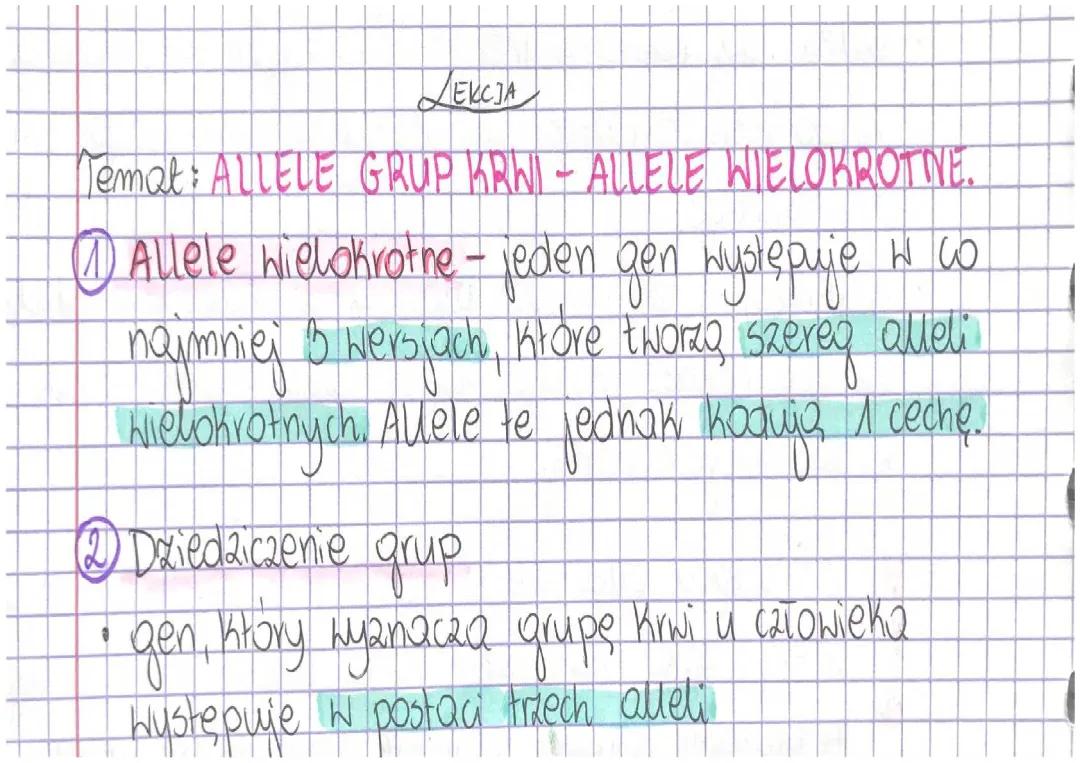 LEKCJA
Temat: ALLELE GRUP KRWI - ALLELE WIELOKROTNE.
1 Allele wielokrotne - jeden gen występuje w co
najmniej 3 wersjach, które tworzą szereg alleli
wielokrotnych. Allele te jednak kodują 1 cechę.
2 Dziedziczenie grup
• gen, który wyznacza grupę krwi u człowieka
występuje w postaci trzech alleli